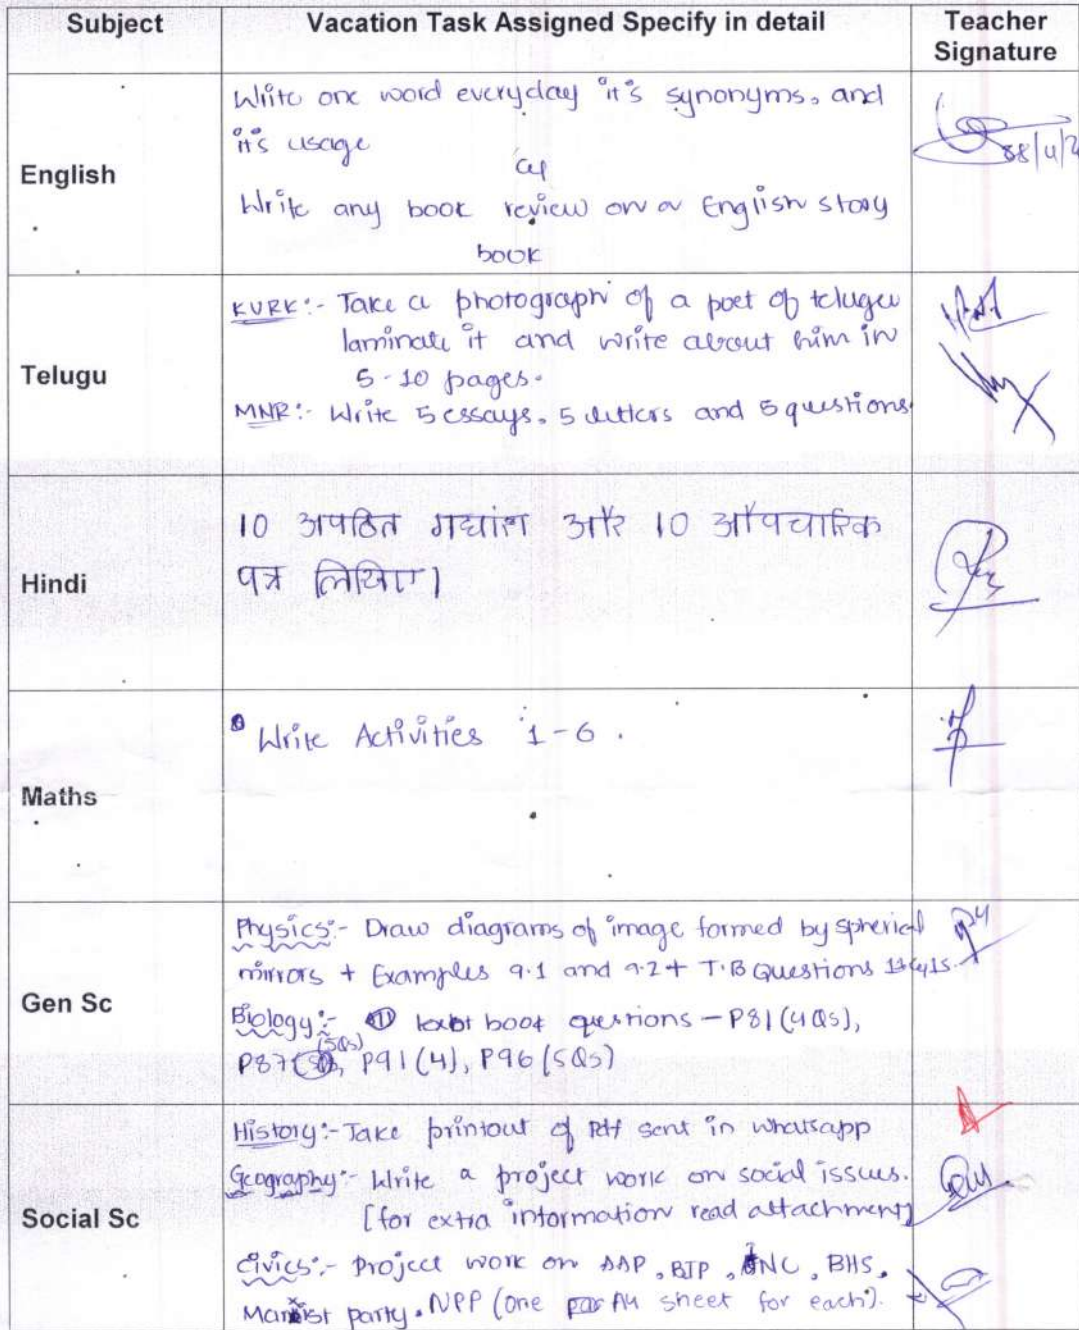 Subject Vacation Task Assigned Specify in detail Teacher
Signature
English
Write one word everyday it's synonyms, and
it's usage
Write any book review on a English story
book
88/4/2
Telugu
KURK:- Take a photograph of a poet of telugu
laminate it and write about him in
5-10 pages.
MNR:- Write 5 essays, 5 letters and 5 questions
Hindi
10 अपठित गद्यांश और 10 औपचारिक
पत्र लिखिए।
Maths
Write Activities 1-6.
Gen Sc
Physics:- Draw diagrams of image formed by spherical
mirrors + Examples 9.1 and 9.2 + T.B Questions
Biology:- ① text book questions - P81 (4Qs),
P87 (5Qs), P91 (4), P96 (5Qs)
Social Sc
History:- Take printout of Pdf sent in whatsapp
Geography:- Write a project work on social issues.
[for extra information read attachment]
Civics:- Project work on AAP, BJP, INC, BHS,
Marxist party. NPP (one A4 sheet for each).